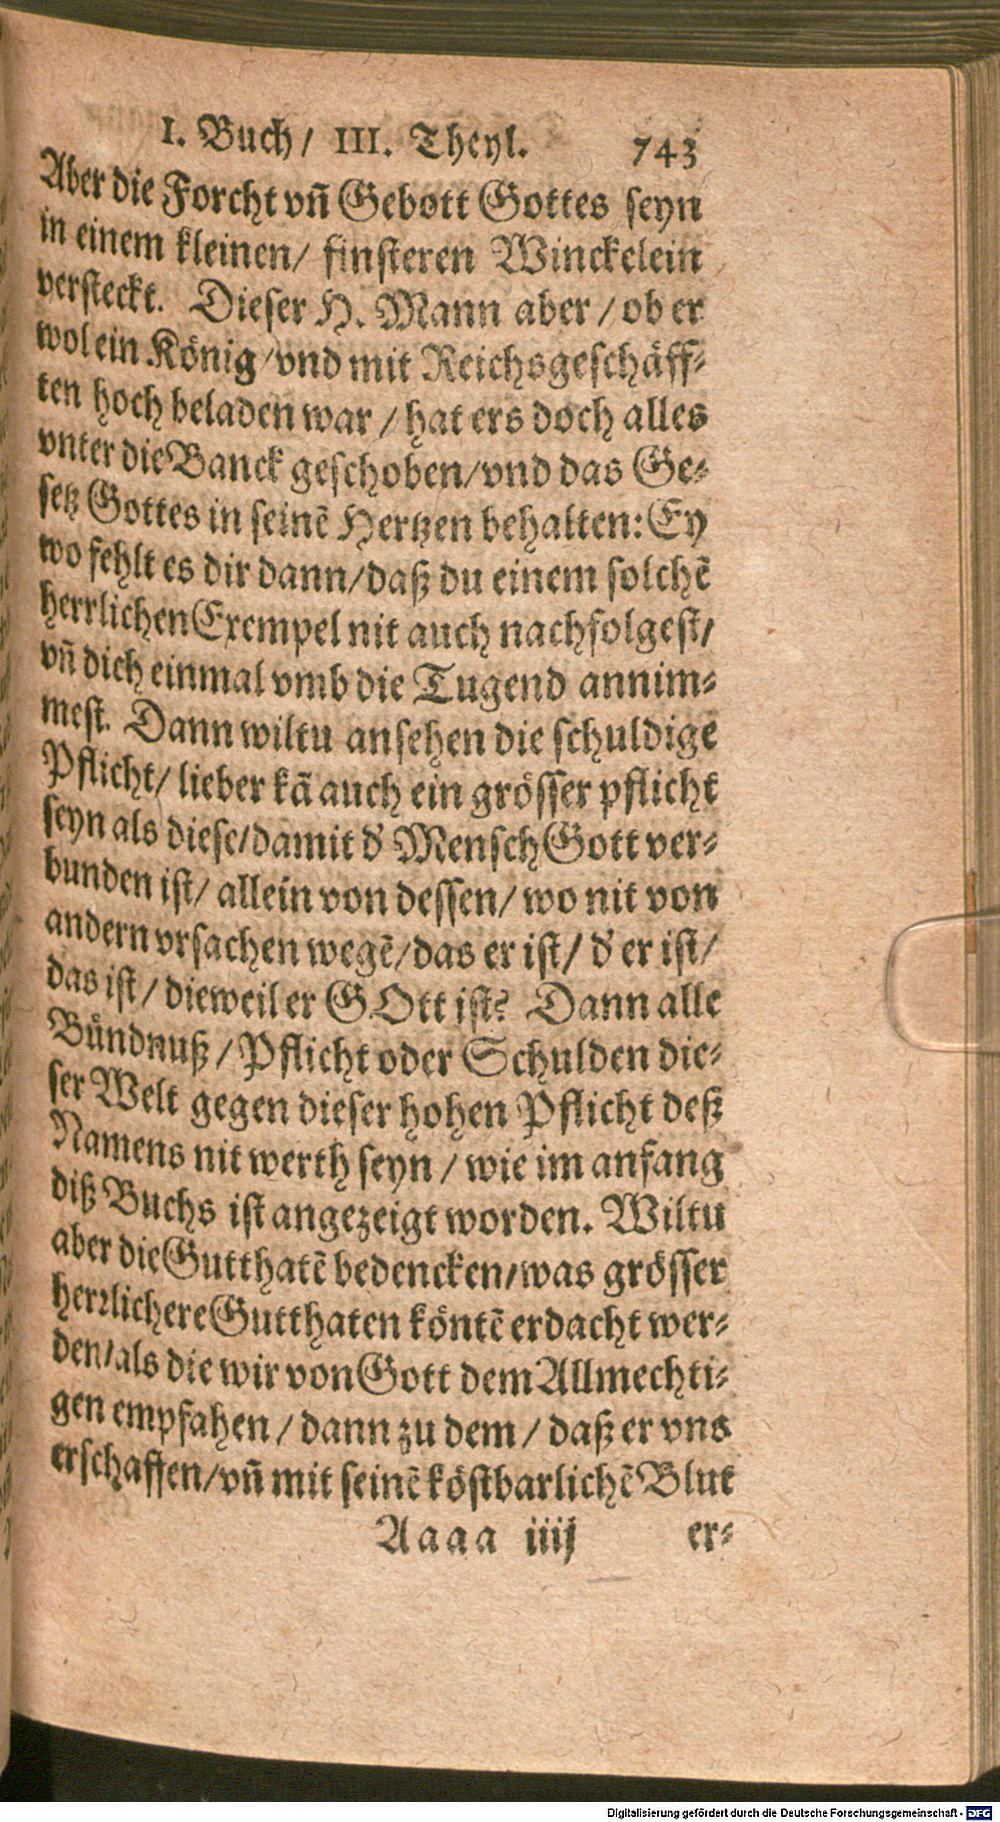 I. Buch/ III. Theyl. 743
Aber die Forcht vñ Gebott Gottes seyn
in einem kleinen/ finsteren Winckelein
versteckt. Dieser H. Mann aber/ ob er
wol ein König/ vnd mit Reichsgeschäff-
ten hoch beladen war/ hat ers doch alles
vnter die Banck geschoben/ vnd das Ge-
setz Gottes in seinẽ Hertzen behalten: Ey
wo fehlt es dir dann/ daß du einem solchẽ
herrlichen Exempel nit auch nachfolgest/
vñ dich einmal vmb die Tugend annim-
mest. Dann wiltu ansehen die schuldige
Pflicht/ lieber kã auch ein grösser pflicht
seyn als diese/ damit d' Mensch Gott ver-
bunden ist/ allein von dessen/ wo nit von
andern vrsachen wegẽ/ das er ist/ d' er ist/
das ist/ dieweil er GOtt ist? Dann alle
Bündnuß/ Pflicht oder Schulden die-
ser Welt gegen dieser hohen Pflicht deß
Namens nit werth seyn/ wie im anfang
diß Buchs ist angezeigt worden. Wiltu
aber die Gutthatẽ bedencken/ was grösser
herrlichere Gutthaten köntẽ erdacht wer-
den/ als die wir von Gott dem Allmechti-
gen empfahen/ dann zu dem/ daß er vns
erschaffen/ vñ mit seinẽ köstbarlichẽ Blut
Aaaa iiij er-
Digitalisierung gefördert durch die Deutsche Forschungsgemeinschaft - DFG